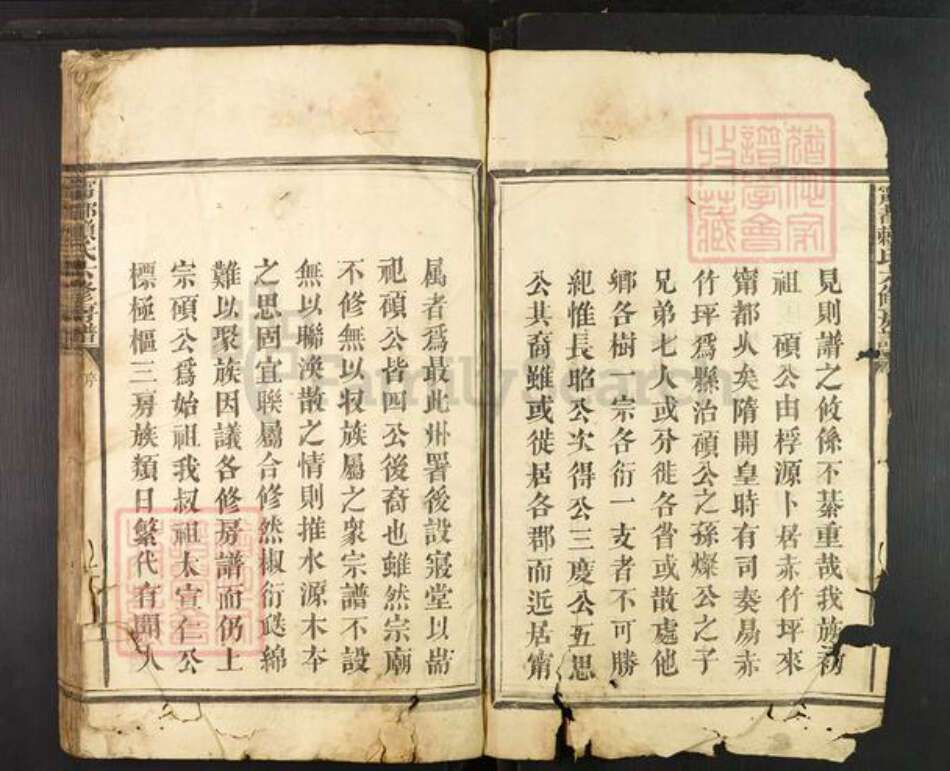 見則譜之攸係不綦重哉我族初
祖 碩公由桴源卜居赤竹坪來
甯都久矣隋開皇時有司奏易赤
竹坪爲縣治碩公之孫燦公之子
兄弟七人或分徙各省或散處他
鄉各樹一宗各衍一支者不可勝
紀惟長昭公次得公三慶公五思
公其裔雖或徙居各郡而近居甯
属者爲最此州署後設寢堂以耑
祀碩公皆四公後裔也雖然宗廟
不修無以収族屬之衆宗譜不設
無以聯渙散之情則推水源木夲
之思固宜聯屬合修然椒衍瓞綿
難以聚族因議各修房譜而仍上
宗碩公爲始祖我叔祖太宣仁公
標極樞三房族類日繁代有聞人
甯都賴氏六修房譜
FamilySearch